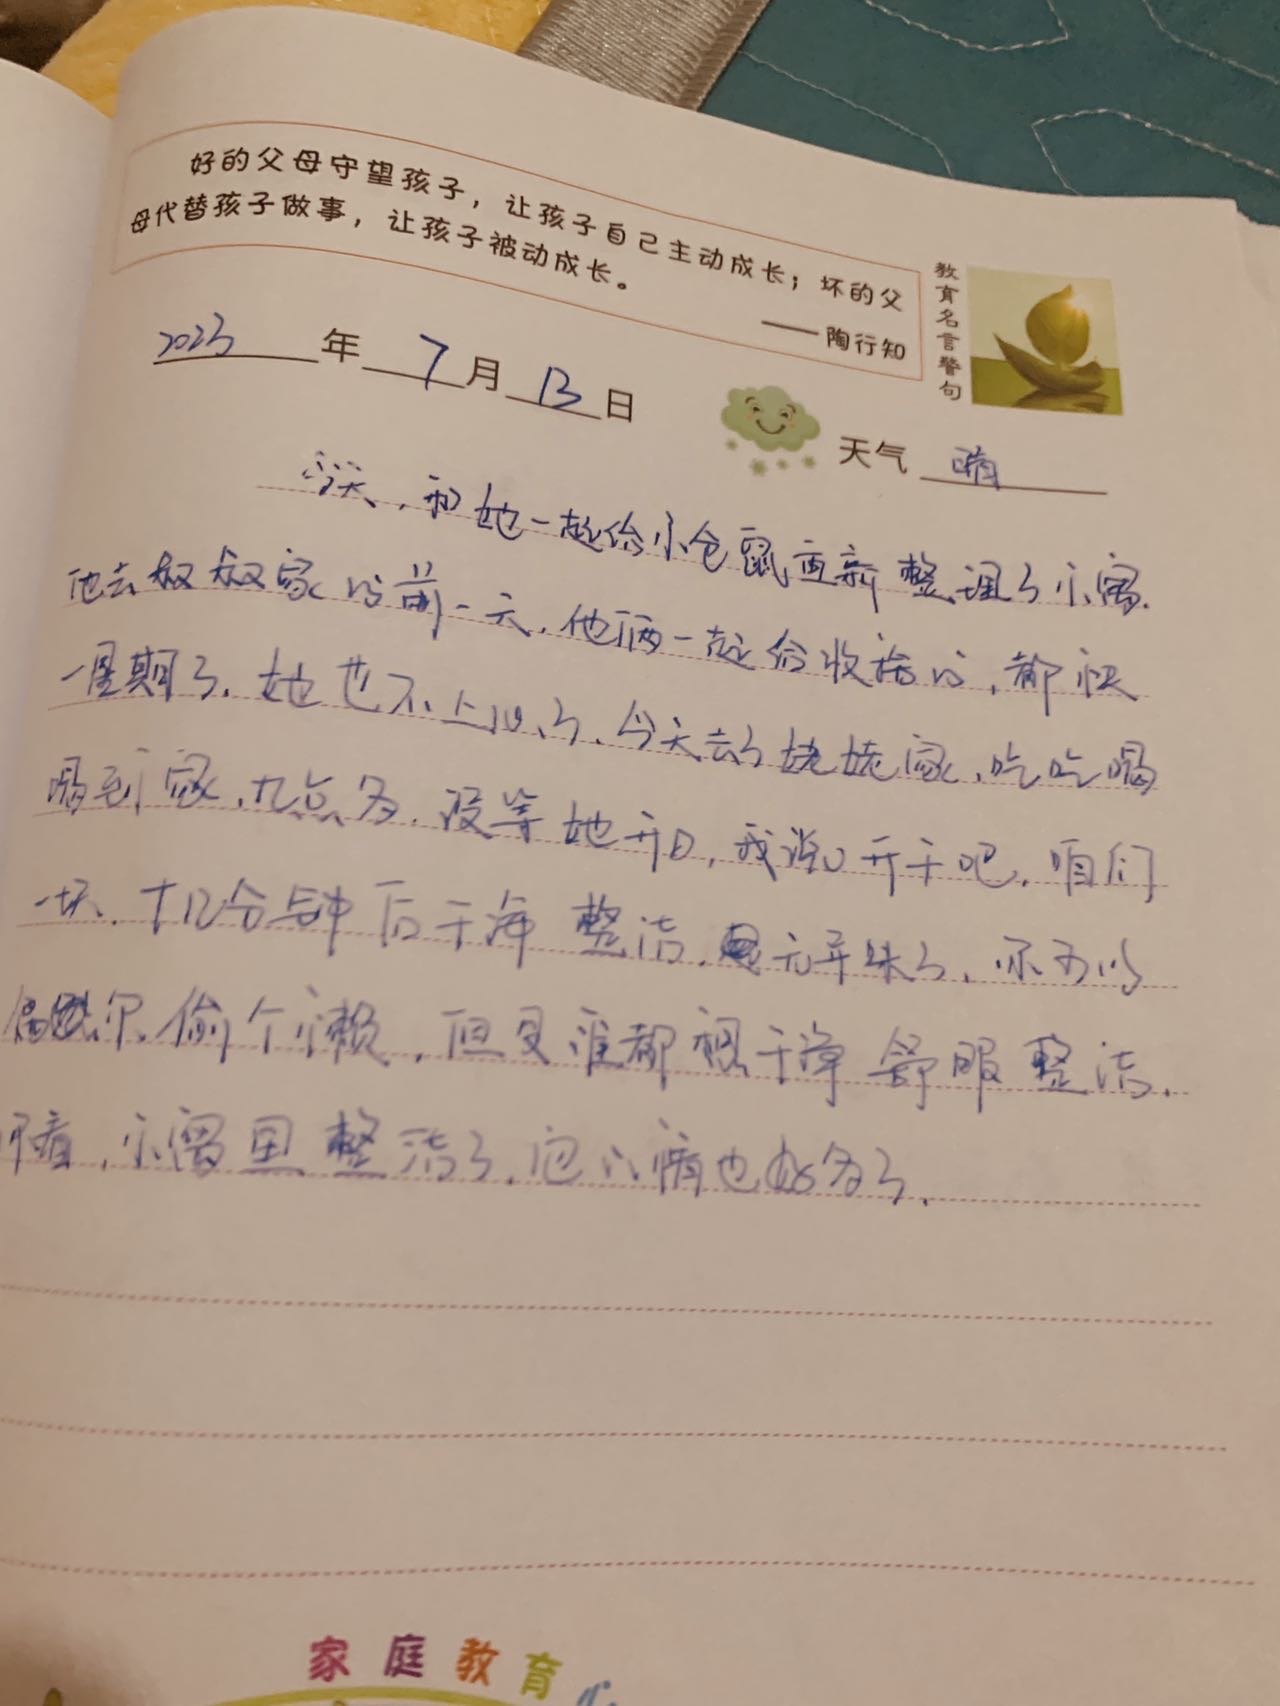 好的父母守望孩子，让孩子自己主动成长；坏的父
母代替孩子做事，让孩子被动成长。
——陶行知
教育名言警句
2023年7月13日
天气 晴
今天，和她一起给小仓鼠重新整理了小窝.
他去叔叔家的前一天.他俩一起给收拾的，都快
一星期了.她也不上心了、今天去了姥姥家、吃吃喝
喝到家.九点多.没等她开口，我说开干吧.咱们
一块.十几分钟后干净整洁.无异味了、你可以
偶尔偷个懒，但是谁都想干净舒服整洁.
看，小窝里整洁了.心情也好多了.
家庭教育